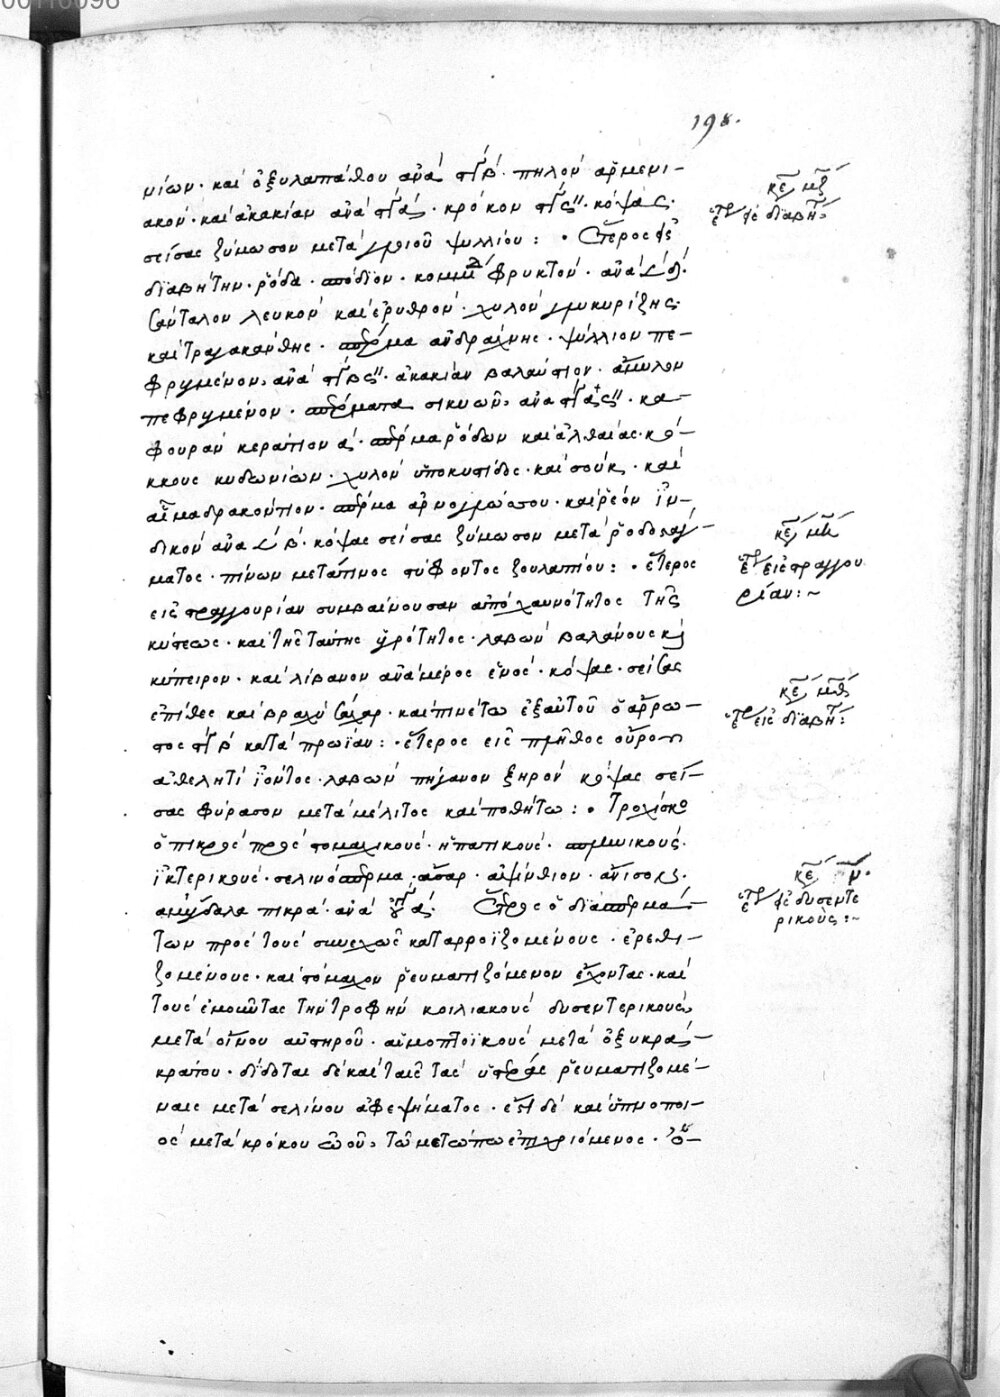 198.
νίων· καὶ ὀξυλαπάθου ἀνὰ β· πηλὸν ἀρμενι-
ακόν· καὶ ἀκακίαν ἀνὰ α· κρόκον · κόψας·
σείσας ζύμωσον μετὰ ψυλλίου: · ἕτερος εἰς
διαβήτην· ῥόδα· σπόδιον· κόμμι φρυκτόν· ἀνὰ
σάνταλον λευκὸν καὶ ἐρυθρόν· χυλὸν γλυκυρίζης·
καὶ τραγακάνθης· σπέρμα ἀνδράχνης· ψύλλιον πε-
φρυμένον, ἀνὰ · ἀκακίαν βαλαύστιον· ἄμυλον
πεφρυμένον· σπέρματα σικυῶν, ἀνὰ · κα-
φουρὰν κεράτιον α· σπέρμα ῥόδων καὶ ἀλθαίας· κό-
κκους κυδωνίων· χυλὸν ὑποκυστίδος· καὶ · καὶ
αἷμα δρακόντιον· σπέρμα ἀρνογλώσσου· καὶ ῥέον ἰν-
δικὸν ἀνὰ β· κόψας σείσας ζύμωσον μετὰ ῥοδοστάγ-
ματος· πίνων μετά τινος στύφοντος ζουλαπίου: · ἕτερος
εἰς στραγγουρίαν συμβαίνουσαν ἀπὸ χαυνότητος τῆς
κύστεως· καὶ τῆς ταύτης ὑγρότητος· λαβὼν βαλάνους καὶ
κύπειρον· καὶ λίβανον ἀνὰ μέρος ἑνός· κόψας· σείσας
ἐπίθες καὶ βραχὺ σάχαρ· καὶ πινέτω ἐξ αὐτοῦ ὁ ἄρρω-
στος β κατὰ πρωΐαν: · ἕτερος εἰς πλῆθος οὔρου
ἀθελητὶ ἰόντος· λαβὼν πήγανον ξηρὸν κόψας σεί-
σας φύρασον μετὰ μέλιτος καὶ ποθήτω: · Τροχίσκος
ὁ πικρὸς πρὸς στομαχικούς· ἡπατικούς· σπληνικούς·
ἰκτερικούς· σελινόσπερμα· ἄσαρ· ἀψίνθιον· ἄνισον·
ἀμύγδαλα πικρὰ· ἀνὰ α. ἕτερος ὁ διασπερμά-
των πρὸς τοὺς συνεχῶς καταρροϊζομένους· ἐρεθι-
ζομένους· καὶ στόμαχον ῥευματιζόμενον ἔχοντας· καὶ
τοὺς ἐμοῦντας τὴν τροφὴν κοιλιακοὺς δυσεντερικοὺς
μετὰ οἴνου αὐστηροῦ· αἱμοπτοϊκοὺς μετὰ ὀξυκρά-
κράτου· δίδοται δὲ καὶ ταῖς τὰς ὑστέρας ῥευματιζομέ-
ναις μετὰ σελίνου ἀφεψήματος· ἔστι δὲ καὶ ὑπνοποι-
ὸς μετὰ κρόκου ὠοῦ, τῶ μετώπω ἐπιχριόμενος·
κεφ μζ
ἕτερος εἰς διαβήτ:
κεφ μη
ἕτερος εἰς στραγγου
ρίαν:~
κεφ μθ
ἕτερος εἰς διαβήτ:
κεφ ν.
ἕτερος εἰς δυσεντε
ρικούς:~